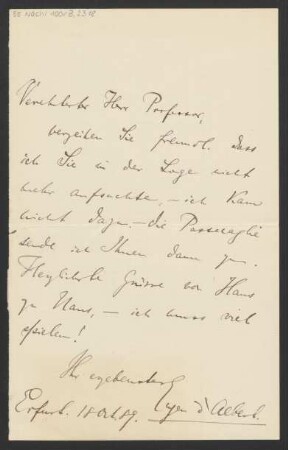 Verehrtester Herr Professor,
verzeihen Sie freundl. dass
ich Sie in der Loge nicht
mehr aufsuchte, – ich kam
nicht dazu. – die Passacaglia
sende ich Ihnen dann zu.
Herzlichste Grüsse von Haus
zu Haus, – ich muss viel
spielen!
Ihr ergebenster
Erfurt. 18 Oct. 89. Eugen d'Albert.